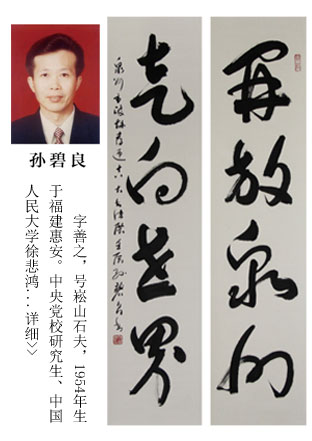 孙碧良
字善之，号崧山石夫，1954年生
于福建惠安。中央党校研究生、中国
人民大学徐悲鸿... 详细>>
開放泉州
走向世界